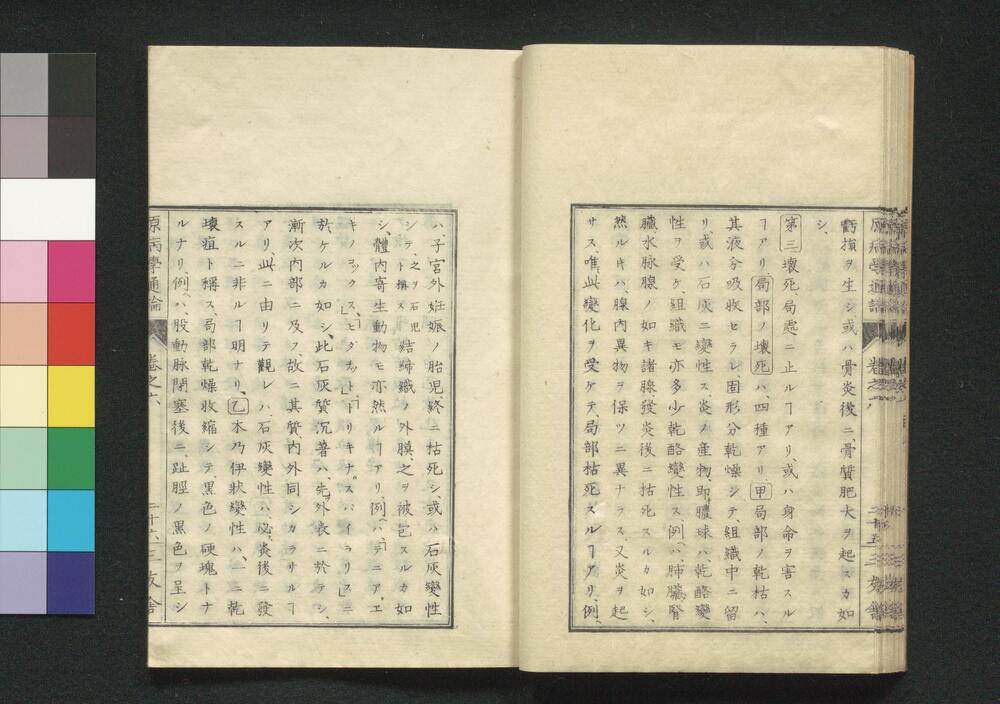 虧損ヲ生シ、或ハ骨炎後ニ、骨質肥大ヲ起スカ如
シ、
第三壊死、局處ニ止ルヿアリ、或ハ身命ヲ害スル
ヿアリ、局部ノ壊死ハ、四種アリ、甲局部ノ乾枯ハ、
其液分吸收セラレ、固形分乾燥シテ、組織中ニ留
リ、或ハ石灰ニ變性ス、炎ノ産物、即膿球ハ、乾酪變
性ヲ受ケ、組織モ亦多少乾酪變性ス、例ヘハ、肺臓、腎
臓、水脉腺ノ如キ諸腺、發炎後ニ枯死スルカ如シ、
然ルキハ、腺内異物ヲ保ツニ異ナラス、又炎ヲ起
サス、唯此變化ヲ受ケテ、局部枯死スルヿアリ、例
ハ、子宮外妊娠ノ胎児、終ニ枯死シ、或ハ石灰變性
シテ、之ヲ石児ト稱ス結締織ノ外膜、之ヲ被包スルカ如
シ、體内寄生動物モ亦然ルヿアリ、例ヘハ、「テニア、エ
キノコックス」、「モダチット」、「トリキナ、スパイラリス」ニ
於ケルカ如シ、此石灰質沉著ハ、先ツ外表ニ於テシ、
漸次内部ニ及フ、故ニ其質、内外同シカラサルヿ
アリ、此ニ由リテ觀レハ、石灰變性ハ、必炎後ニ發
スルニ非ルヿ明ナリ、乙木乃伊状變性ハ、一ニ乾
壊疽ト稱ス、局部乾燥收縮シテ、黒色ノ硬塊トナ
ルナリ、例ヘハ、股動脉閉塞後ニ、趾脛ノ黒色ヲ呈シ
原病學通論 巻之六 二十六 三友舎